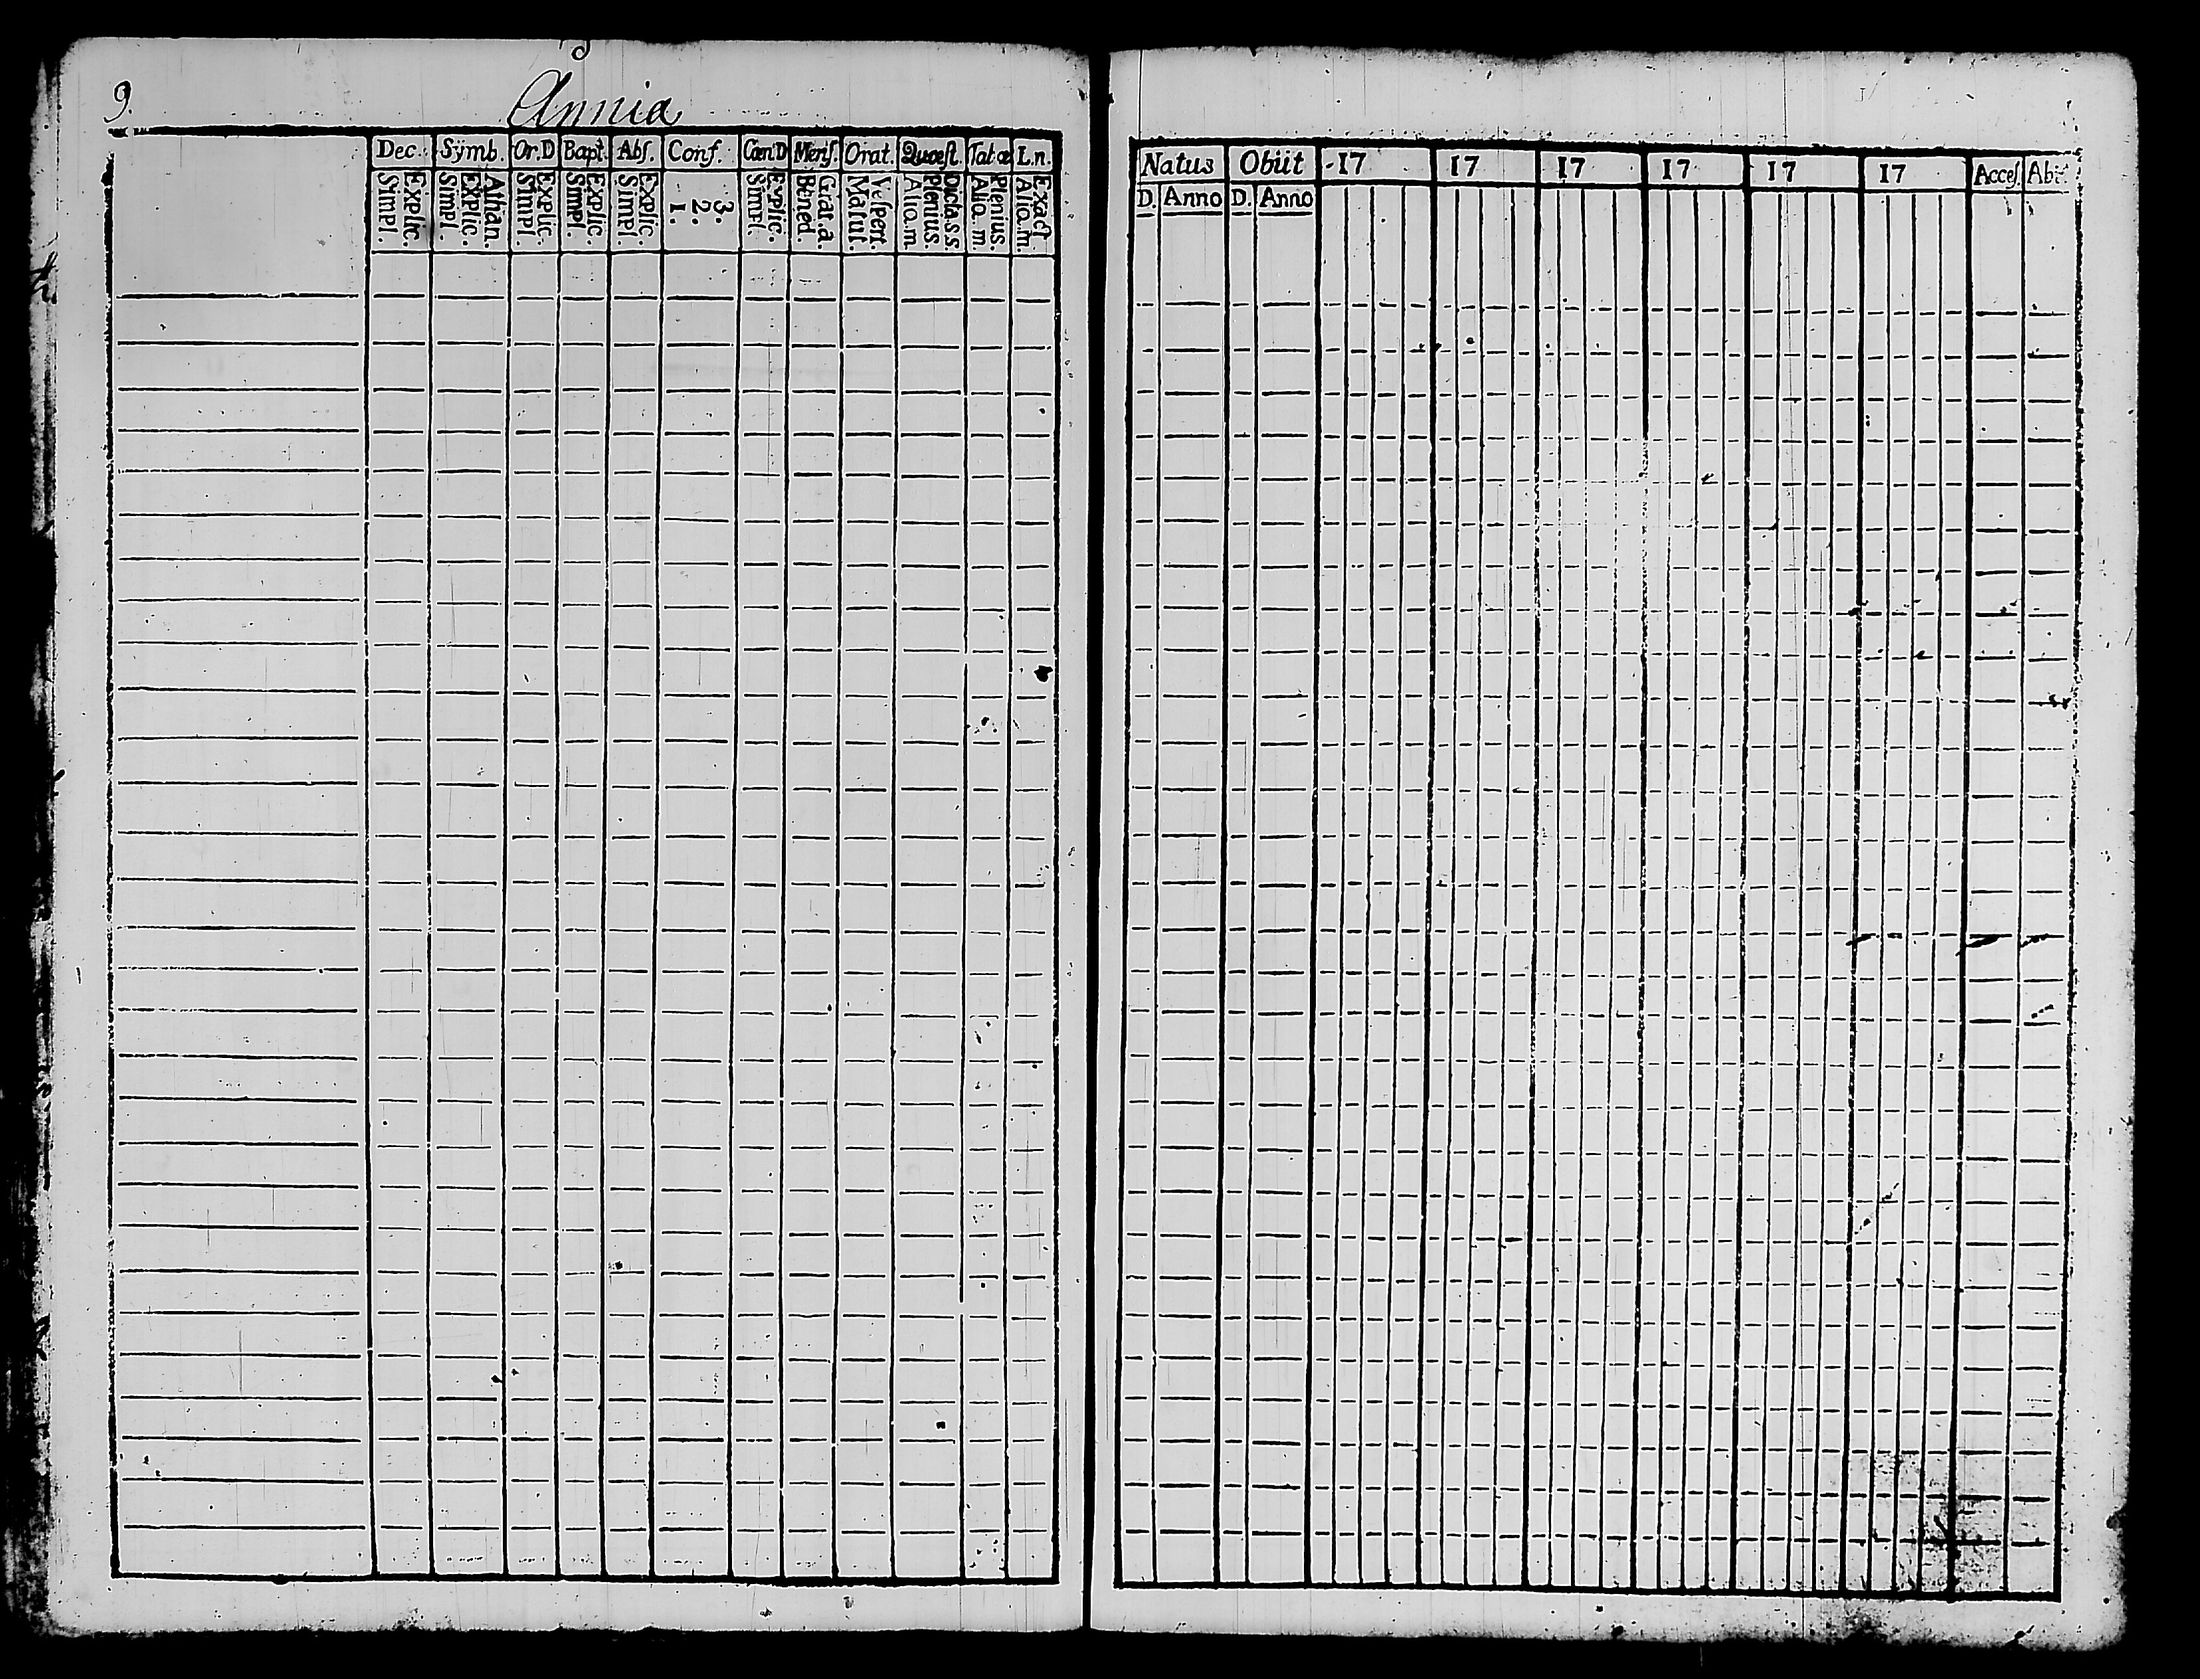 9.
Annia
Dec. Symb. Or.D Bapt. Abſ. Conf. Cœn D Menſ. Orat. Quæſt. Tabœ L.n.
Explic. Simpl. Athan. Explic. Simpl. Explic. Simpl. Explic. Simpl. Explic. Simpl. 3. 2. 1. Explic. Simpl. Grat.a. Bened. Veſpert. Matut. Dicta.s.s. Plenius. Aliq.m Plenius. Aliq.m Exact Aliq.m.
Natus Obiit 17 17 17 17 17 17 Acceſ. Abit
D. Anno D. Anno